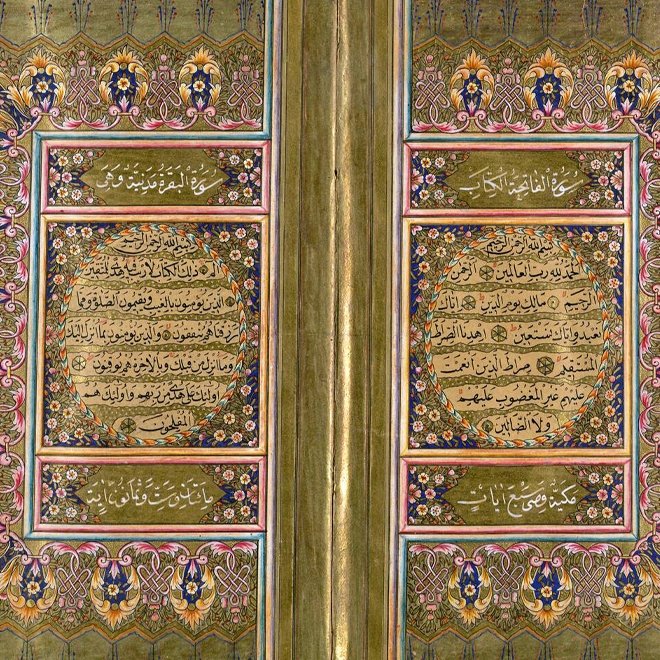 سورة الفاتحة الكتاب
بسم الله الرحمن الرحيم
الحمد لله رب العالمين الرحمن
الرحيم مالك يوم الدين اياك
نعبد واياك نستعين اهدنا الصراط
المستقيم صراط الذين انعمت
عليهم غير المغضوب عليهم
ولا الضالين
مكية وهى سبع ايات
سورة البقرة مدنية وهى
بسم الله الرحمن الرحيم
الم ذلك الكتاب لا ريب فيه هدى للمتقين
الذين يؤمنون بالغيب ويقيمون الصلوة ومما
رزقناهم ينفقون والذين يؤمنون بما انزل اليك
وما انزل من قبلك وبالاخرة هم يوقنون
اولئك على هدى من ربهم واولئك هم
المفلحون
وثمانون اية